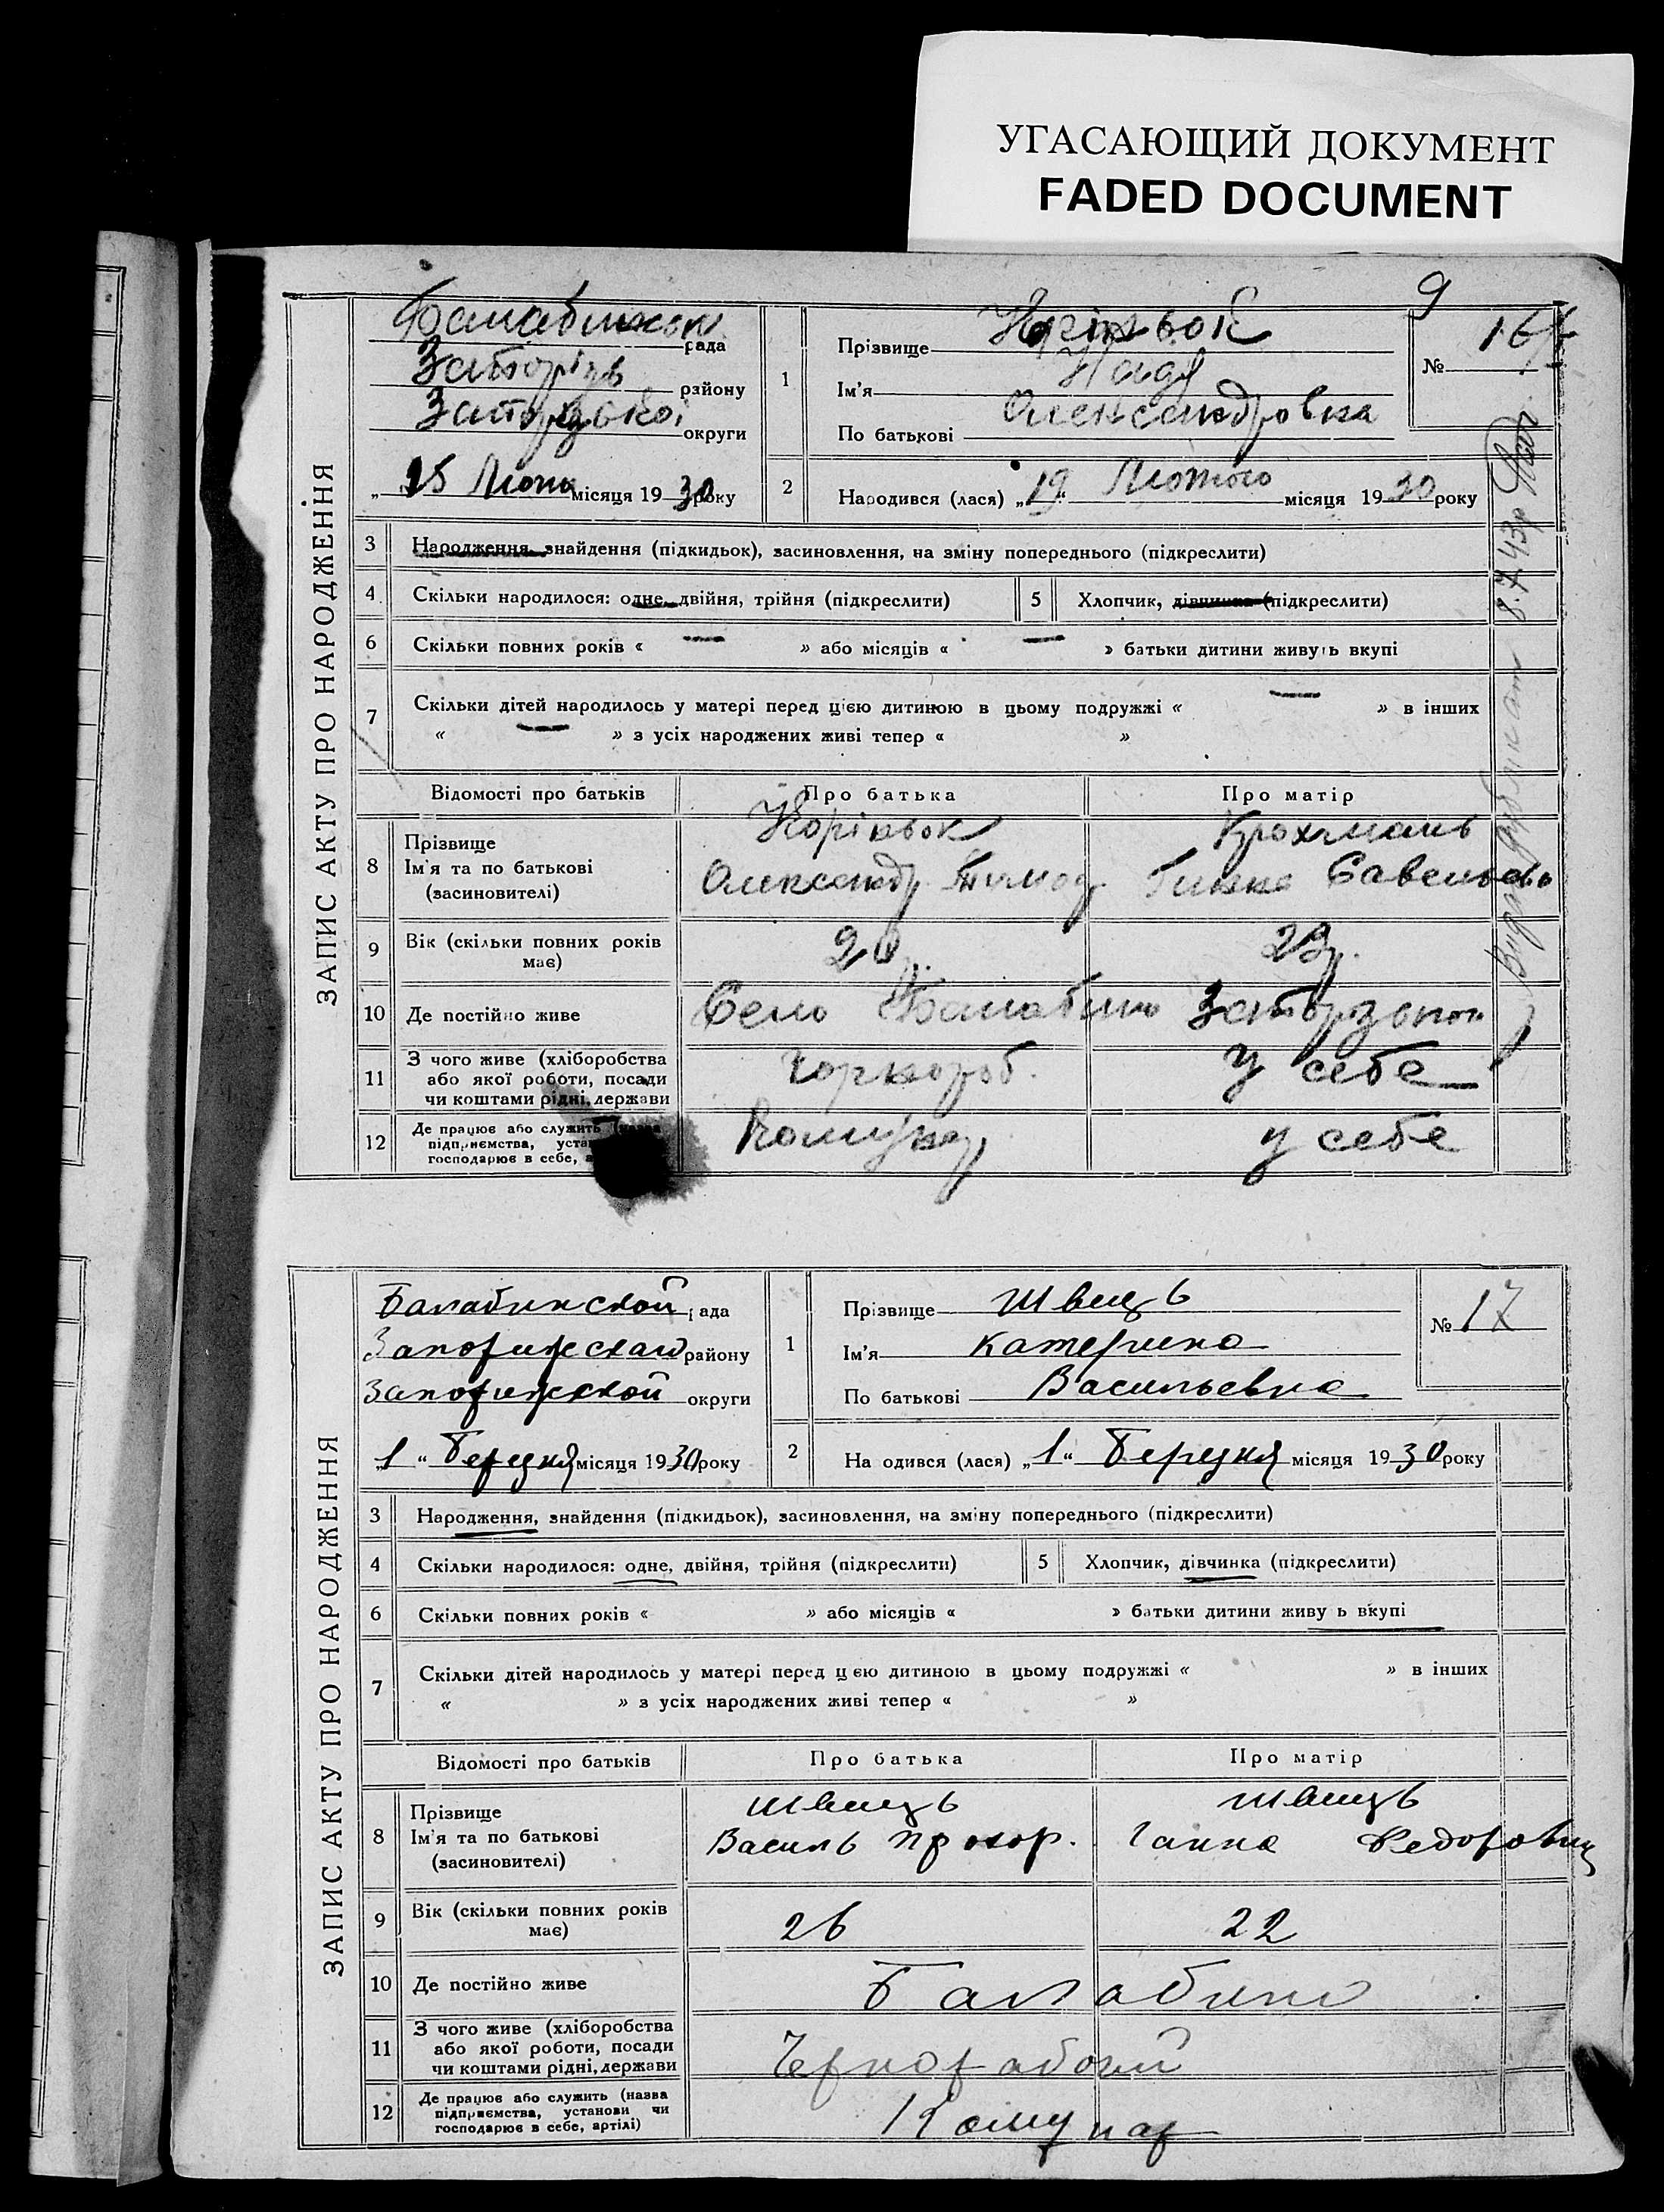 УГАСАЮЩИЙ ДОКУМЕНТ
FADED DOCUMENT
9
ЗАПИС АКТУ ПРО НАРОДЖЕННЯ
рада
району
округи
місяця 1930 року
1
Прізвище
Ім'я Надя
По батькові Олександровна
№ 16
2 Народився (лася) „19“ Лютого місяця 1930 року
3 Народження, знайдення (підкидьок), засиновлення, на зміну попереднього (підкреслити)
4 Скільки народилося: одне, двійня, трійня (підкреслити) 5 Хлопчик, дівчинка (підкреслити)
6 Скільки повних років « — » або місяців « — » батьки дитини живуть вкупі
7 Скільки дітей народилось у матері перед цією дитиною в цьому подружжі « — » в інших
« — » з усіх народжених живі тепер « »
Відомості про батьків Про батька Про матір
8 Прізвище
Ім'я та по батькові
(засиновителі)
Олександр Тимоф.
9 Вік (скільки повних років має) 23р.
10 Де постійно живе Село Балабино
11 З чого живе (хліборобства або якої роботи, посади чи коштами рідні, держави Чорнороб. у себе
12 Де працює або служить (назва підприємства, установи господарює в себе, Комунар у себе
Видан дублікат 8.7.43р
ЗАПИС АКТУ ПРО НАРОДЖЕННЯ
Балабинской рада
Запорижской району
Запорижской округи
„1“ Березня місяця 1930 року
1
Прізвище Швець
Ім'я Катерина
По батькові Васильевна
№ 17
2 Народився (лася) „1“ Березня місяця 1930 року
3 Народження, знайдення (підкидьок), засиновлення, на зміну попереднього (підкреслити)
4 Скільки народилося: одне, двійня, трійня (підкреслити) 5 Хлопчик, дівчинка (підкреслити)
6 Скільки повних років « » або місяців « » батьки дитини живуь вкупі
7 Скільки дітей народилось у матері перед цією дитиною в цьому подружжі « » в інших
« » з усіх народжених живі тепер « »
Відомості про батьків Про батька Про матір
8 Прізвище Швець Швець
Ім'я та по батькові Василь Прохор. Ганна Федоровн
(засиновителі)
9 Вік (скільки повних років має) 26 22
10 Де постійно живе Балабино
11 З чого живе (хліборобства або якої роботи, посади чи коштами рідні, держави Чернорабочий
12 Де працює або служить (назва підприємства, установи чи господарює в себе, артілі) Комунар